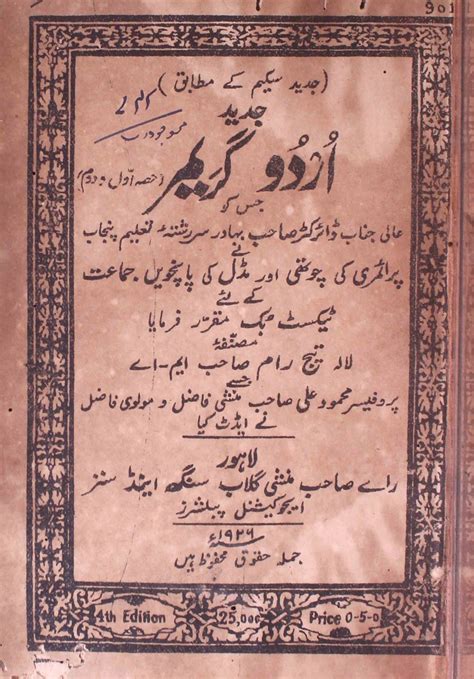 301
(جدید سکیم کے مطابق)
جدید
اُردُو گریمر
(حصہ اوّل و دوم)
جس کو
عالی جناب ڈائرکٹر صاحب بہادر سررشتۂ تعلیم پنجاب
نے
پرائمری کی چوتھی اور مڈل کی پانچویں جماعت
کے لئے
ٹیکسٹ بک مقرّر فرمایا
مصنّفۂ
لالہ تیج رام صاحب ایم-اے
جسے
پروفیسر محمود علی صاحب منشی فاضل و مولوی فاضل
نے ایڈٹ کیا
لاہور
رائے صاحب منشی گلاب سنگھ اینڈ سنز
ایجوکیشنل پبلشرز
۱۹۲۶ء
جملہ حقوق محفوظ ہیں
4th Edition
25,000
Price 0-5-0